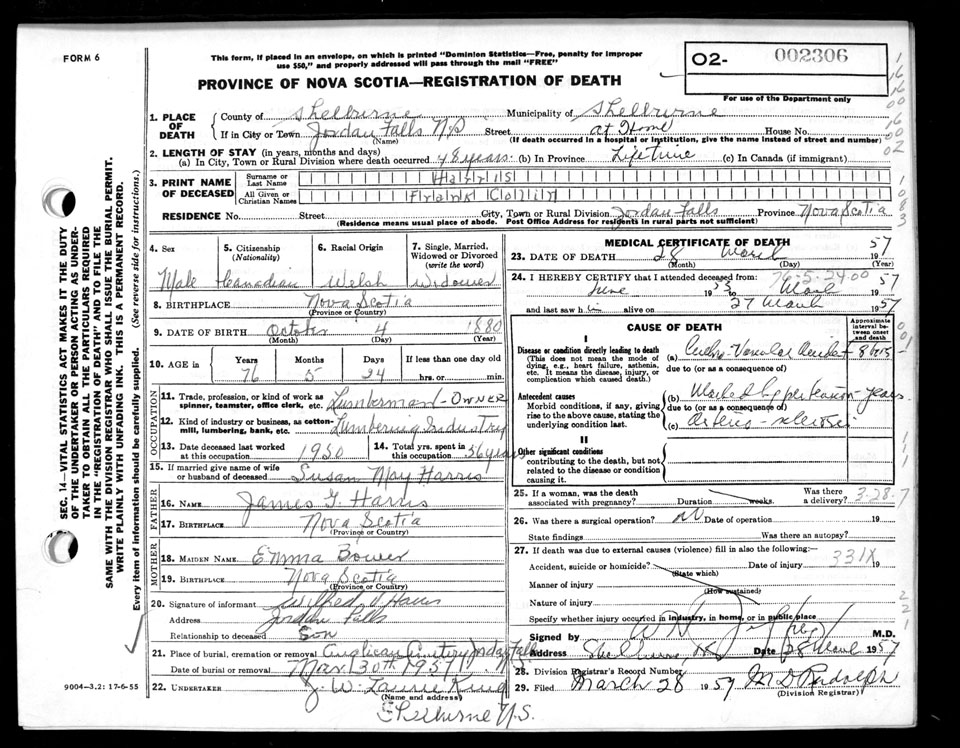 FORM 6
This form, if placed in an envelope, on which is printed "Dominion Statistics—Free, penalty for improper
use $50," and properly addressed will pass through the mail "FREE"
PROVINCE OF NOVA SCOTIA—REGISTRATION OF DEATH
02- 002306
For use of the Department only
1. PLACE OF DEATH
County of Shelburne Municipality of Shelburne
If in City or Town Jordan Falls NS Street at Home House No.
(Name) (If death occurred in a hospital or institution, give the name instead of street and number)
2. LENGTH OF STAY (in years, months and days)
(a) In City, Town or Rural Division where death occurred 48 years. (b) In Province Lifetime (c) In Canada (if immigrant)
3. PRINT NAME OF DECEASED
Surname or Last Name Harris
All Given or Christian Names Frank Colin
RESIDENCE No. Street City, Town or Rural Division Jordan Falls Province Nova Scotia
(Residence means usual place of abode. Post Office Address for residents in rural parts not sufficient)
4. Sex
Male
5. Citizenship (Nationality)
Canadian
6. Racial Origin
Welsh
7. Single, Married, Widowed or Divorced (write the word)
Widower
8. BIRTHPLACE Nova Scotia
(Province or Country)
9. DATE OF BIRTH October 4 1880
(Month) (Day) (Year)
10. AGE in Years Months Days If less than one day old
76 5 24 hrs. or min.
OCCUPATION
11. Trade, profession, or kind of work as spinner, teamster, office clerk, etc. Lumberman - OWNER
12. Kind of industry or business, as cotton-mill, lumbering, bank, etc. Lumbering Industry
13. Date deceased last worked at this occupation 1950
14. Total yrs. spent in this occupation 36 years
15. If married give name of wife or husband of deceased Susan May Harris
FATHER
16. NAME James F Harris
17. BIRTHPLACE Nova Scotia
(Province or Country)
MOTHER
18. MAIDEN NAME Emma Bower
19. BIRTHPLACE Nova Scotia
(Province or Country)
20. Signature of informant Wilfred Harris
Address Jordan Falls
Relationship to deceased Son
21. Place of burial, cremation or removal Anglican Cemetery Jordan Falls
Date of burial or removal Mar. 30th 1957 N.S.
22. UNDERTAKER J. W. Laurie King
(Name and address)
Shelburne N.S.
MEDICAL CERTIFICATE OF DEATH
23. DATE OF DEATH 28 March 1957
(Month) (Day) (Year)
24. I HEREBY CERTIFY that I attended deceased from: 76-5-24.00
June 19 to March 1957
and last saw him alive on 27 March 1957
CAUSE OF DEATH
Approximate interval between onset and death
I
Disease or condition directly leading to death
(This does not mean the mode of dying, e.g., heart failure, asthenia, etc. It means the disease, injury, or complication which caused death.)
(a) Cerebro-Vascular Accident 8 hrs
due to (or as a consequence of)
Antecedent causes
Morbid conditions, if any, giving rise to the above cause, stating the underlying condition last.
(b) Marked hypertension - years
due to (or as a consequence of)
(c) arterio-sclerosis
II
Other significant conditions
contributing to the death, but not related to the disease or condition causing it.
25. If a woman, was the death associated with pregnancy? Duration weeks. Was there a delivery? 3-28-7
26. Was there a surgical operation? No Date of operation 19
State findings Was there an autopsy?
27. If death was due to external causes (violence) fill in also the following:—
Accident, suicide or homicide? Date of injury 331X 19
(State which)
Manner of injury
(How sustained)
Nature of injury
Specify whether injury occurred in industry, in home, or in public place
Signed by M.D.
Address Shelburne, NS Date 28 March 1957
28. Division Registrar's Record Number
29. Filed March 28 1957 M D Rudolph
(Division Registrar)
SEC. 14—VITAL STATISTICS ACT MAKES IT THE DUTY
OF THE UNDERTAKER OR PERSON ACTING AS UNDER-
TAKER TO OBTAIN ALL THE PARTICULARS REQUIRED
IN THE "REGISTRATION OF DEATH" AND TO FILE THE
SAME WITH THE DIVISION REGISTRAR WHO SHALL ISSUE THE BURIAL PERMIT.
WRITE PLAINLY WITH UNFADING INK. THIS IS A PERMANENT RECORD.
Every item of information should be carefully supplied. (See reverse side for instructions.)
9004—3.2: 17-6-55